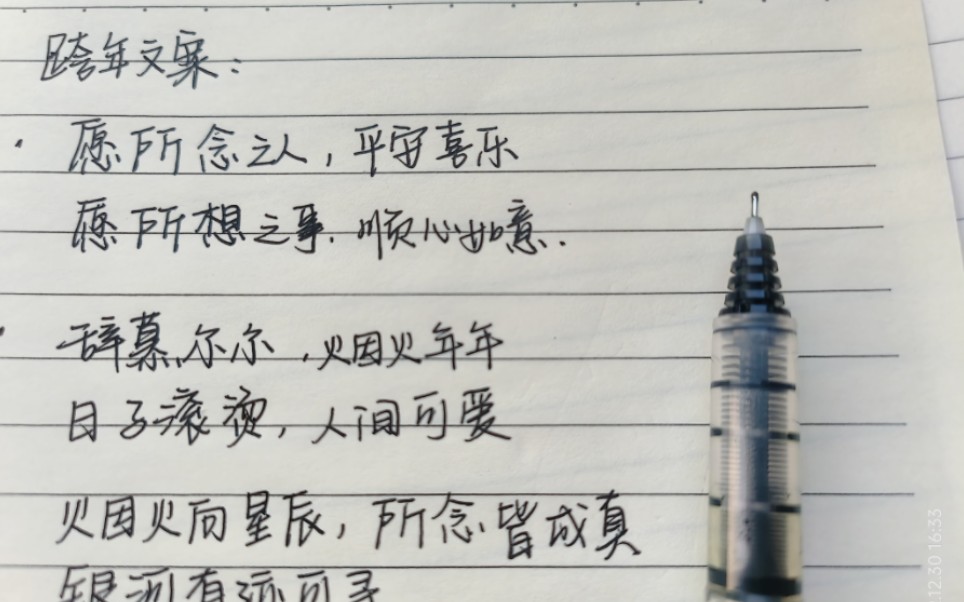 跨年文案:
· 愿所念之人,平安喜乐
愿所想之事.顺心如意.
· 辞慕尔尔,烟火年年
日子滚烫,人间可爱
烟火向星辰,所念皆成真
银河有迹可寻
.12.30 16:33